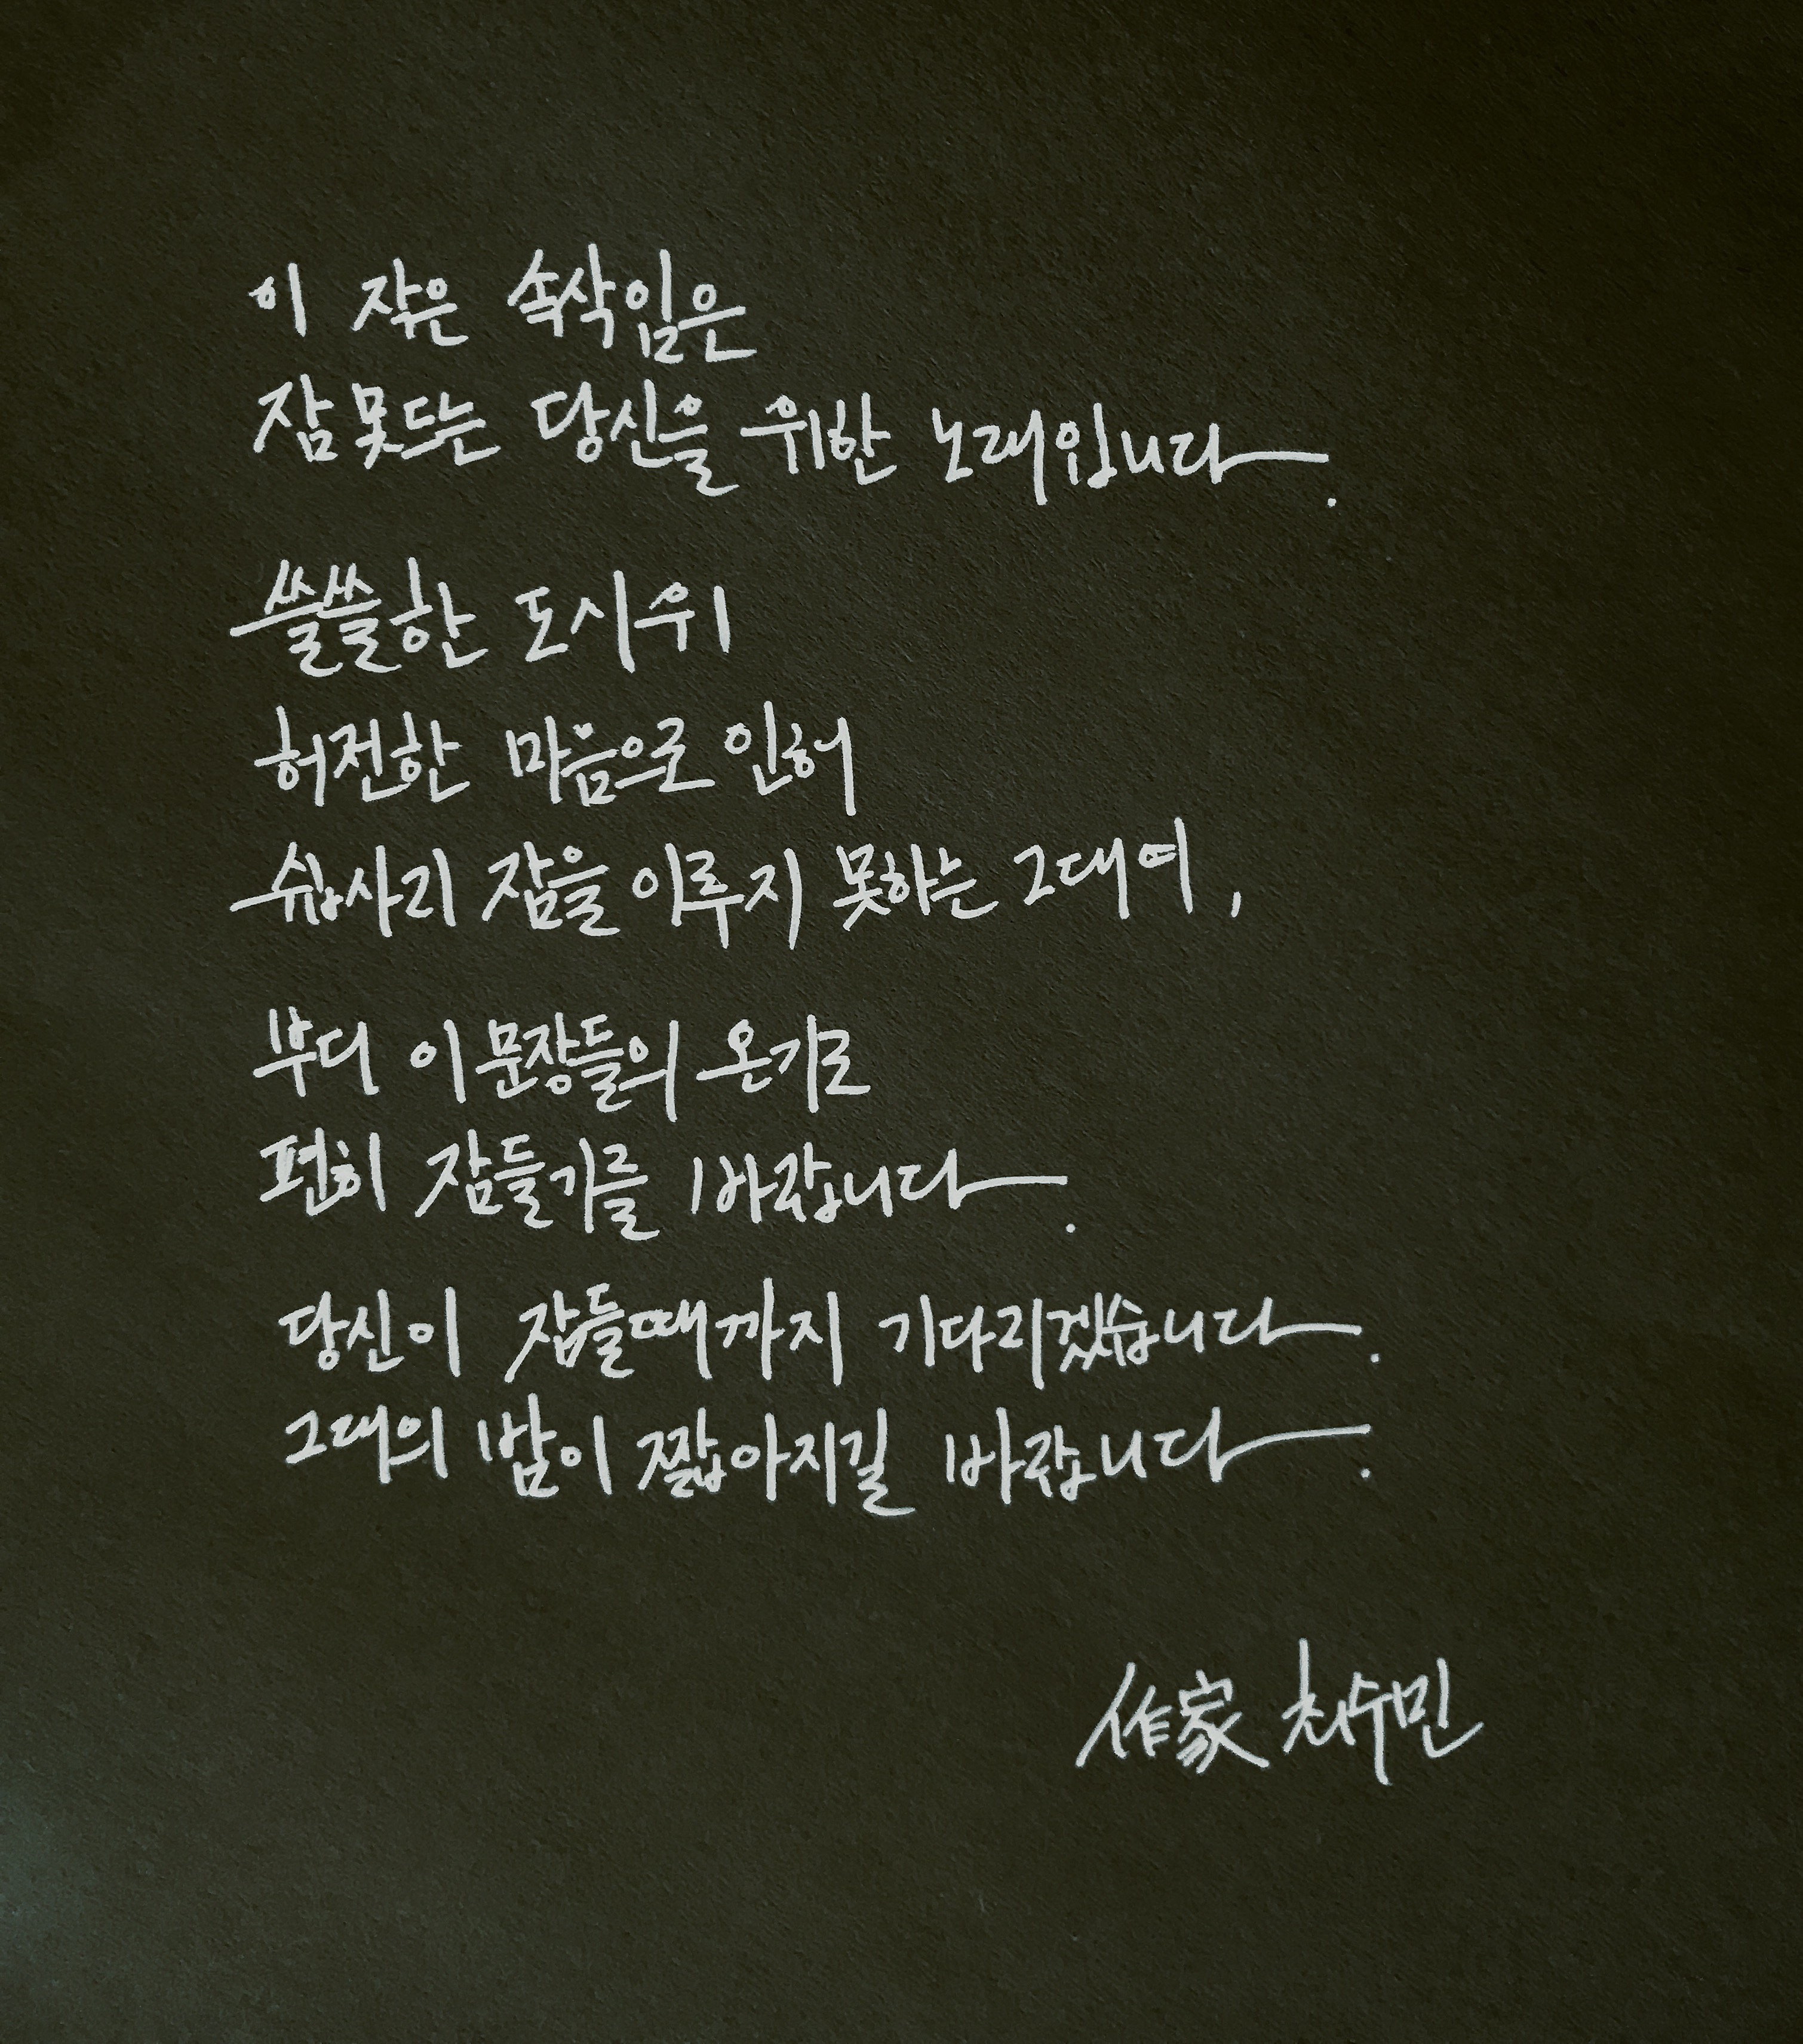 이 작은 속삭임은
잠 못드는 당신을 위한 노래입니다.
쓸쓸한 도시위
허전한 마음으로 인해
쉽사리 잠을 이루지 못하는 그대여,
부디 이 문장들의 온기로
편히 잠들기를 바랍니다.
당신이 잠들때까지 기다리겠습니다.
그대의 밤이 짧아지길 바랍니다.
作家 최수민